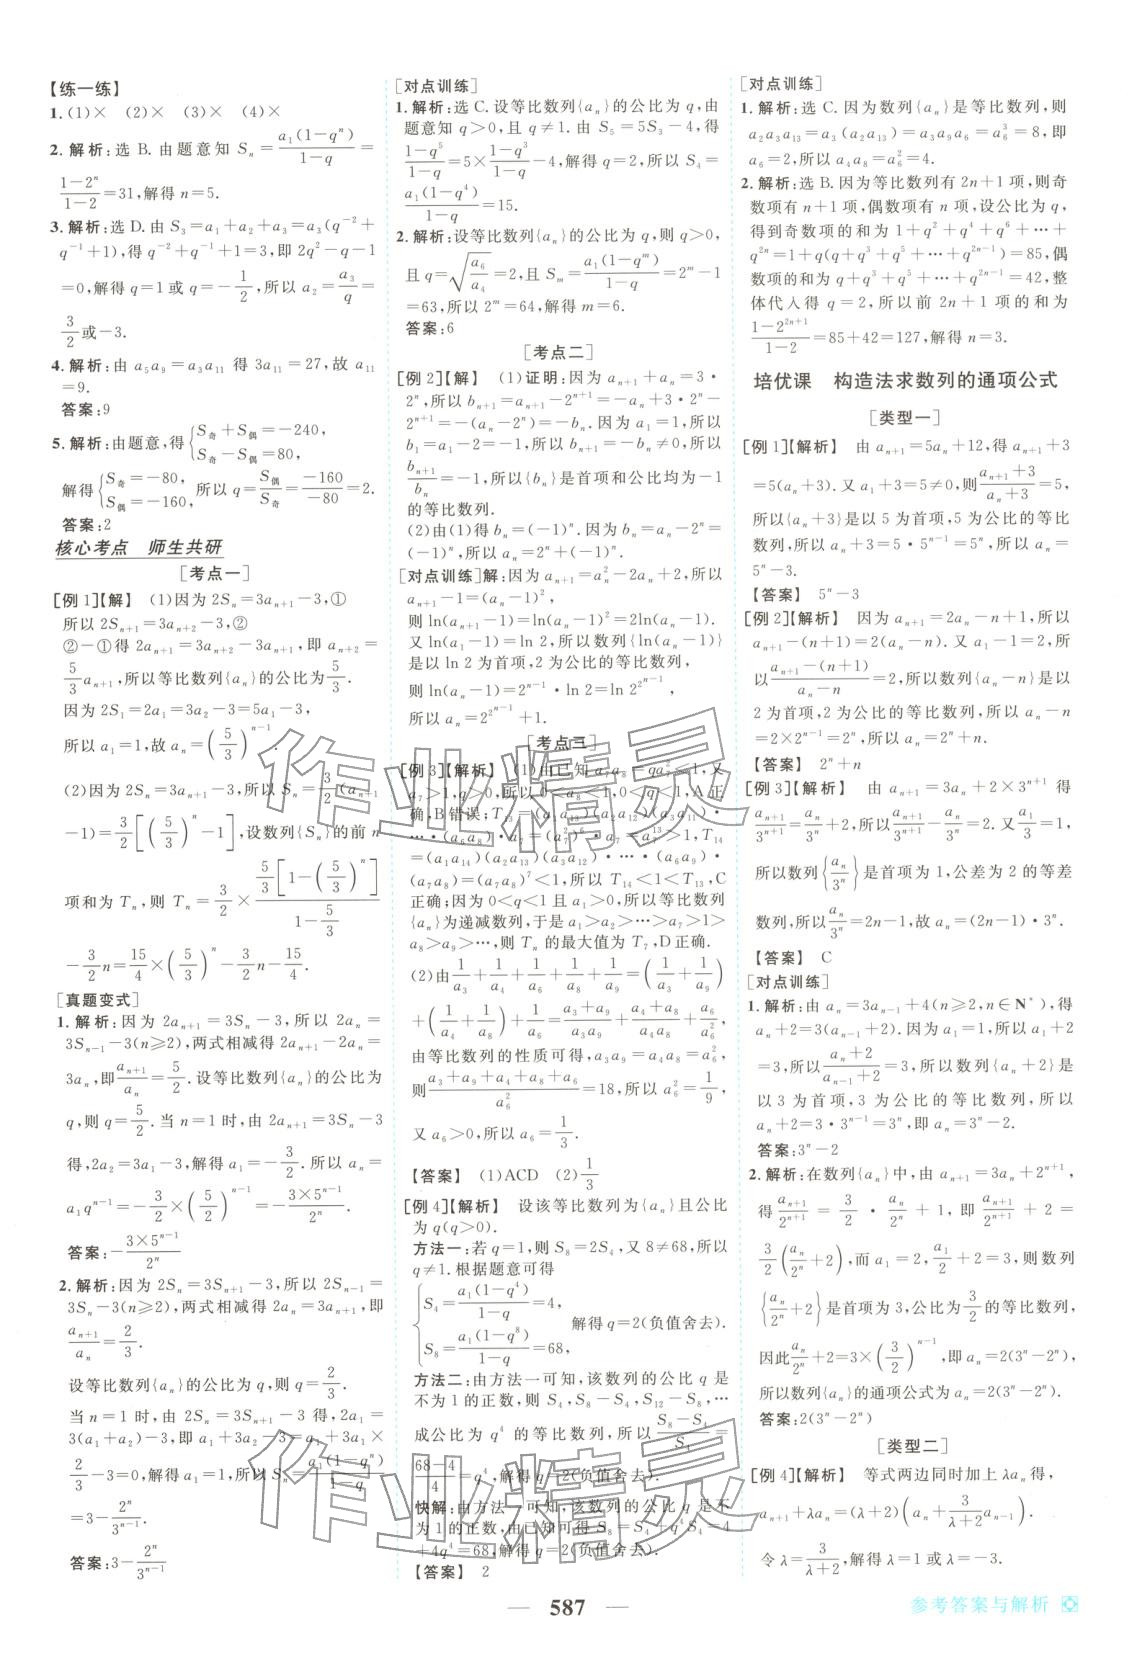 【练一练】
1.(1)× (2)× (3)× (4)×
2.解析:选 B.由题意知 Sₙ=a₁(1-qⁿ)/(1-q)=
(1-2ⁿ)/(1-2)=31,解得 n=5.
3.解析:选 D.由 S₃=a₁+a₂+a₃=a₃(q⁻²+
q⁻¹+1),得 q⁻²+q⁻¹+1=3,即 2q²-q-1
=0,解得 q=1 或 q=-1/2,所以 a₂=a₃/q=
3/2或-3.
4.解析:由 a₅a₉=a₃a₁₁ 得 3a₁₁=27,故 a₁₁
=9.
答案:9
5.解析:由题意,得{S奇+S偶=-240,
S奇-S偶=80,
解得{S奇=-80, S偶=-160, 所以 q=S偶/S奇=-160/-80=2.
答案:2
核心考点 师生共研
[考点一]
[例 1]【解】 (1)因为 2Sₙ=3aₙ₊₁-3,①
所以 2Sₙ₊₁=3aₙ₊₂-3,②
②-①得 2aₙ₊₁=3aₙ₊₂-3aₙ₊₁,即 aₙ₊₂=
5/3 aₙ₊₁,所以等比数列{aₙ}的公比为5/3.
因为 2S₁=2a₁=3a₂-3=5a₁-3,
所以 a₁=1,故 aₙ=(5/3)ⁿ⁻¹.
(2)因为 2Sₙ=3aₙ₊₁-3,所以 Sₙ=3/2(aₙ₊₁
-1)=3/2[(5/3)ⁿ-1],设数列{Sₙ}的前 n
项和为 Tₙ,则 Tₙ=3/2×5/3[1-(5/3)ⁿ]/(1-5/3)
-3/2n=15/4×(5/3)ⁿ-3/2n-15/4.
[真题变式]
1.解析:因为 2aₙ₊₁=3Sₙ-3,所以 2aₙ=
3Sₙ₋₁-3(n≥2),两式相减得 2aₙ₊₁-2aₙ=
3aₙ,即aₙ₊₁/aₙ=5/2.设等比数列{aₙ}的公比为
q,则 q=5/2.当 n=1 时,由 2aₙ₊₁=3Sₙ-3
得,2a₂=3a₁-3,解得 a₁=-3/2.所以 aₙ=
a₁qⁿ⁻¹=-3/2×(5/2)ⁿ⁻¹=-3×5ⁿ⁻¹/2ⁿ.
答案:-3×5ⁿ⁻¹/2ⁿ
2.解析:因为 2Sₙ=3Sₙ₊₁-3,所以 2Sₙ₋₁=
3Sₙ-3(n≥2),两式相减得 2aₙ=3aₙ₊₁,即
aₙ₊₁/aₙ=2/3.
设等比数列{aₙ}的公比为 q,则 q=2/3.
当 n=1 时,由 2Sₙ=3Sₙ₊₁-3 得,2a₁=
3(a₁+a₂)-3,即 a₁+3a₂=3,所以 a₁+3a₁×
2/3-3=0,解得 a₁=1,所以 Sₙ=a₁(1-qⁿ)/(1-q)
=3-2ⁿ/3ⁿ⁻¹.
答案:3-2ⁿ/3ⁿ⁻¹
[对点训练]
1.解析:选 C.设等比数列{aₙ}的公比为 q,由
题意知 q>0,且 q≠1.由 S₅=5S₃-4,得
(1-q⁵)/(1-q)=5×(1-q³)/(1-q)-4,解得 q=2,所以 S₄=
a₁(1-q⁴)/(1-q)=15.
2.解析:设等比数列{aₙ}的公比为 q,则 q>0,
且 q=√(a₆/a₄)=2,且 Sₘ=a₁(1-qᵐ)/(1-q)=2ᵐ-1
=63,所以 2ᵐ=64,解得 m=6.
答案:6
[考点二]
[例 2]【解】 (1)证明:因为 aₙ₊₁+aₙ=3·
2ⁿ,所以 bₙ₊₁=aₙ₊₁-2ⁿ⁺¹=-aₙ+3·2ⁿ-
2ⁿ⁺¹=-(aₙ-2ⁿ)=-bₙ.因为 a₁=1,所以
b₁=a₁-2=-1,所以 bₙ₊₁=-bₙ≠0,所以
bₙ₊₁/bₙ=-1,所以{bₙ}是首项和公比均为-1
的等比数列.
(2)由(1)得 bₙ=(-1)ⁿ.因为 bₙ=aₙ-2ⁿ=
(-1)ⁿ,所以 aₙ=2ⁿ+(-1)ⁿ.
[对点训练]解:因为 aₙ₊₁=aₙ²-2aₙ+2,所以
aₙ₊₁-1=(aₙ-1)²,
则 ln(aₙ₊₁-1)=ln(aₙ-1)²=2ln(aₙ-1).
又 ln(a₁-1)=ln 2,所以数列{ln(aₙ-1)}
是以 ln 2 为首项,2 为公比的等比数列,
则 ln(aₙ-1)=2ⁿ⁻¹·ln 2=ln 2^(2ⁿ⁻¹),
所以 aₙ=2^(2ⁿ⁻¹)+1.
[考点三]
[例 3]【解析】 (1)由已知 a₇a₈=qa₇²<1,又
a₇>1,q>0,所以 0<a₈<1,0<q<1,A 正
确,B 错误;T₁₃=(a₁a₁₃)(a₂a₁₂)(a₃a₁₁)
·…·(a₆a₈)·a₇=(a₇²)⁶·a₇=a₇¹³>1,T₁₄
=(a₁a₁₄)(a₂a₁₃)(a₃a₁₂)·…·(a₆a₉)·
(a₇a₈)=(a₇a₈)⁷<1,所以 T₁₄<1<T₁₃,C
正确;因为 0<q<1 且 a₁>0,所以等比数列
{aₙ}为递减数列,于是 a₁>a₂>…>a₇>1>
a₈>a₉>…,则 Tₙ 的最大值为 T₇,D 正确.
(2)由1/a₃+1/a₄+1/a₆+1/a₈+1/a₉=(1/a₃+1/a₉)
+(1/a₄+1/a₈)+1/a₆=(a₃+a₉)/(a₃a₉)+(a₄+a₈)/(a₄a₈)+a₆/a₆²,
由等比数列的性质可得,a₃a₉=a₄a₈=a₆²,
则(a₃+a₉+a₄+a₈+a₆)/a₆²=18,所以 a₆²=1/9,
又 a₆>0,所以 a₆=1/3.
【答案】 (1)ACD (2)1/3
[例 4]【解析】 设该等比数列为{aₙ}且公比
为 q(q>0).
方法一:若 q=1,则 S₈=2S₄,又 8≠68,所以
q≠1.根据题意可得
{S₄=a₁(1-q⁴)/(1-q)=4,
S₈=a₁(1-q⁸)/(1-q)=68, 解得 q=2(负值舍去).
方法二:由方法一可知,该数列的公比 q 是
不为 1 的正数,则 S₄,S₈-S₄,S₁₂-S₈,…
成公比为 q⁴ 的等比数列,所以(S₈-S₄)/S₄=
(68-4)/4=q⁴,解得 q=2(负值舍去).
快解:由方法一可知,该数列的公比 q 是不
为 1 的正数,由已知可得 S₈=S₄+q⁴S₄=4
+4q⁴=68,解得 q=2(负值舍去).
【答案】 2
[对点训练]
1.解析:选 C.因为数列{aₙ}是等比数列,则
a₂a₃a₁₃=a₃(a₂a₁₃)=a₃a₉a₆=a₆³=8,即
a₆=2,所以 a₄a₈=a₆²=4.
2.解析:选 B.因为等比数列有 2n+1 项,则奇
数项有 n+1 项,偶数项有 n 项,设公比为 q,
得到奇数项的和为 1+q²+q⁴+q⁶+…+
q²ⁿ=1+q(q+q³+q⁵+…+q²ⁿ⁻¹)=85,偶
数项的和为 q+q³+q⁵+…+q²ⁿ⁻¹=42,整
体代入得 q=2,所以前 2n+1 项的和为
(1-2²ⁿ⁺¹)/(1-2)=85+42=127,解得 n=3.
培优课 构造法求数列的通项公式
[类型一]
[例 1]【解析】 由 aₙ₊₁=5aₙ+12,得 aₙ₊₁+3
=5(aₙ+3).又 a₁+3=5≠0,则(aₙ₊₁+3)/(aₙ+3)=5,
所以{aₙ+3}是以 5 为首项,5 为公比的等比
数列,所以 aₙ+3=5·5ⁿ⁻¹=5ⁿ,所以 aₙ=
5ⁿ-3.
【答案】 5ⁿ-3
[例 2]【解析】 因为 aₙ₊₁=2aₙ-n+1,所以
aₙ₊₁-(n+1)=2(aₙ-n).又 a₁-1=2,所
以(aₙ₊₁-(n+1))/(aₙ-n)=2,所以数列{aₙ-n}是以
2 为首项,2 为公比的等比数列,所以 aₙ-n
=2×2ⁿ⁻¹=2ⁿ,所以 aₙ=2ⁿ+n.
【答案】 2ⁿ+n
[例 3]【解析】 由 aₙ₊₁=3aₙ+2×3ⁿ⁺¹ 得
aₙ₊₁/3ⁿ⁺¹=aₙ/3ⁿ+2,所以aₙ₊₁/3ⁿ⁺¹-aₙ/3ⁿ=2.又a₁/3=1,
所以数列{aₙ/3ⁿ}是首项为 1,公差为 2 的等差
数列,所以aₙ/3ⁿ=2n-1,故 aₙ=(2n-1)·3ⁿ.
【答案】 C
[对点训练]
1.解析:由 aₙ=3aₙ₋₁+4(n≥2,n∈N*),得
aₙ+2=3(aₙ₋₁+2).因为 a₁=1,所以 a₁+2
=3,所以(aₙ+2)/(aₙ₋₁+2)=3,所以数列{aₙ+2}是
以 3 为首项,3 为公比的等比数列,所以
aₙ+2=3·3ⁿ⁻¹=3ⁿ,所以 aₙ=3ⁿ-2.
答案:3ⁿ-2
2.解析:在数列{aₙ}中,由 aₙ₊₁=3aₙ+2ⁿ⁺¹,
得 aₙ₊₁/2ⁿ⁺¹=3/2·aₙ/2ⁿ+1,即 aₙ₊₁/2ⁿ⁺¹+2=
3/2(aₙ/2ⁿ+2),而 a₁=2,a₁/2+2=3,则数列
{aₙ/2ⁿ+2}是首项为 3,公比为3/2的等比数列,
因此aₙ/2ⁿ+2=3×(3/2)ⁿ⁻¹,即 aₙ=2(3ⁿ-2ⁿ),
所以数列{aₙ}的通项公式为 aₙ=2(3ⁿ-2ⁿ).
答案:2(3ⁿ-2ⁿ)
[类型二]
[例 4]【解析】 等式两边同时加上 λaₙ 得,
aₙ₊₁+λaₙ=(λ+2)(aₙ+3/(λ+2)aₙ₋₁).
令 λ=3/(λ+2),解得 λ=1 或 λ=-3.
587
参考答案与解析
作业精灵
作业精灵